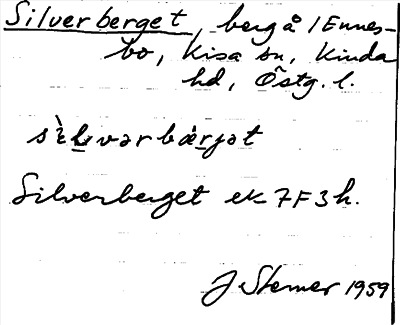 Silverberget, berg å /Ennes-
bo, Kisa sn, Kinda
hd, Östg. l.
Silverberget ek 7F3h.
J Sterner 1959